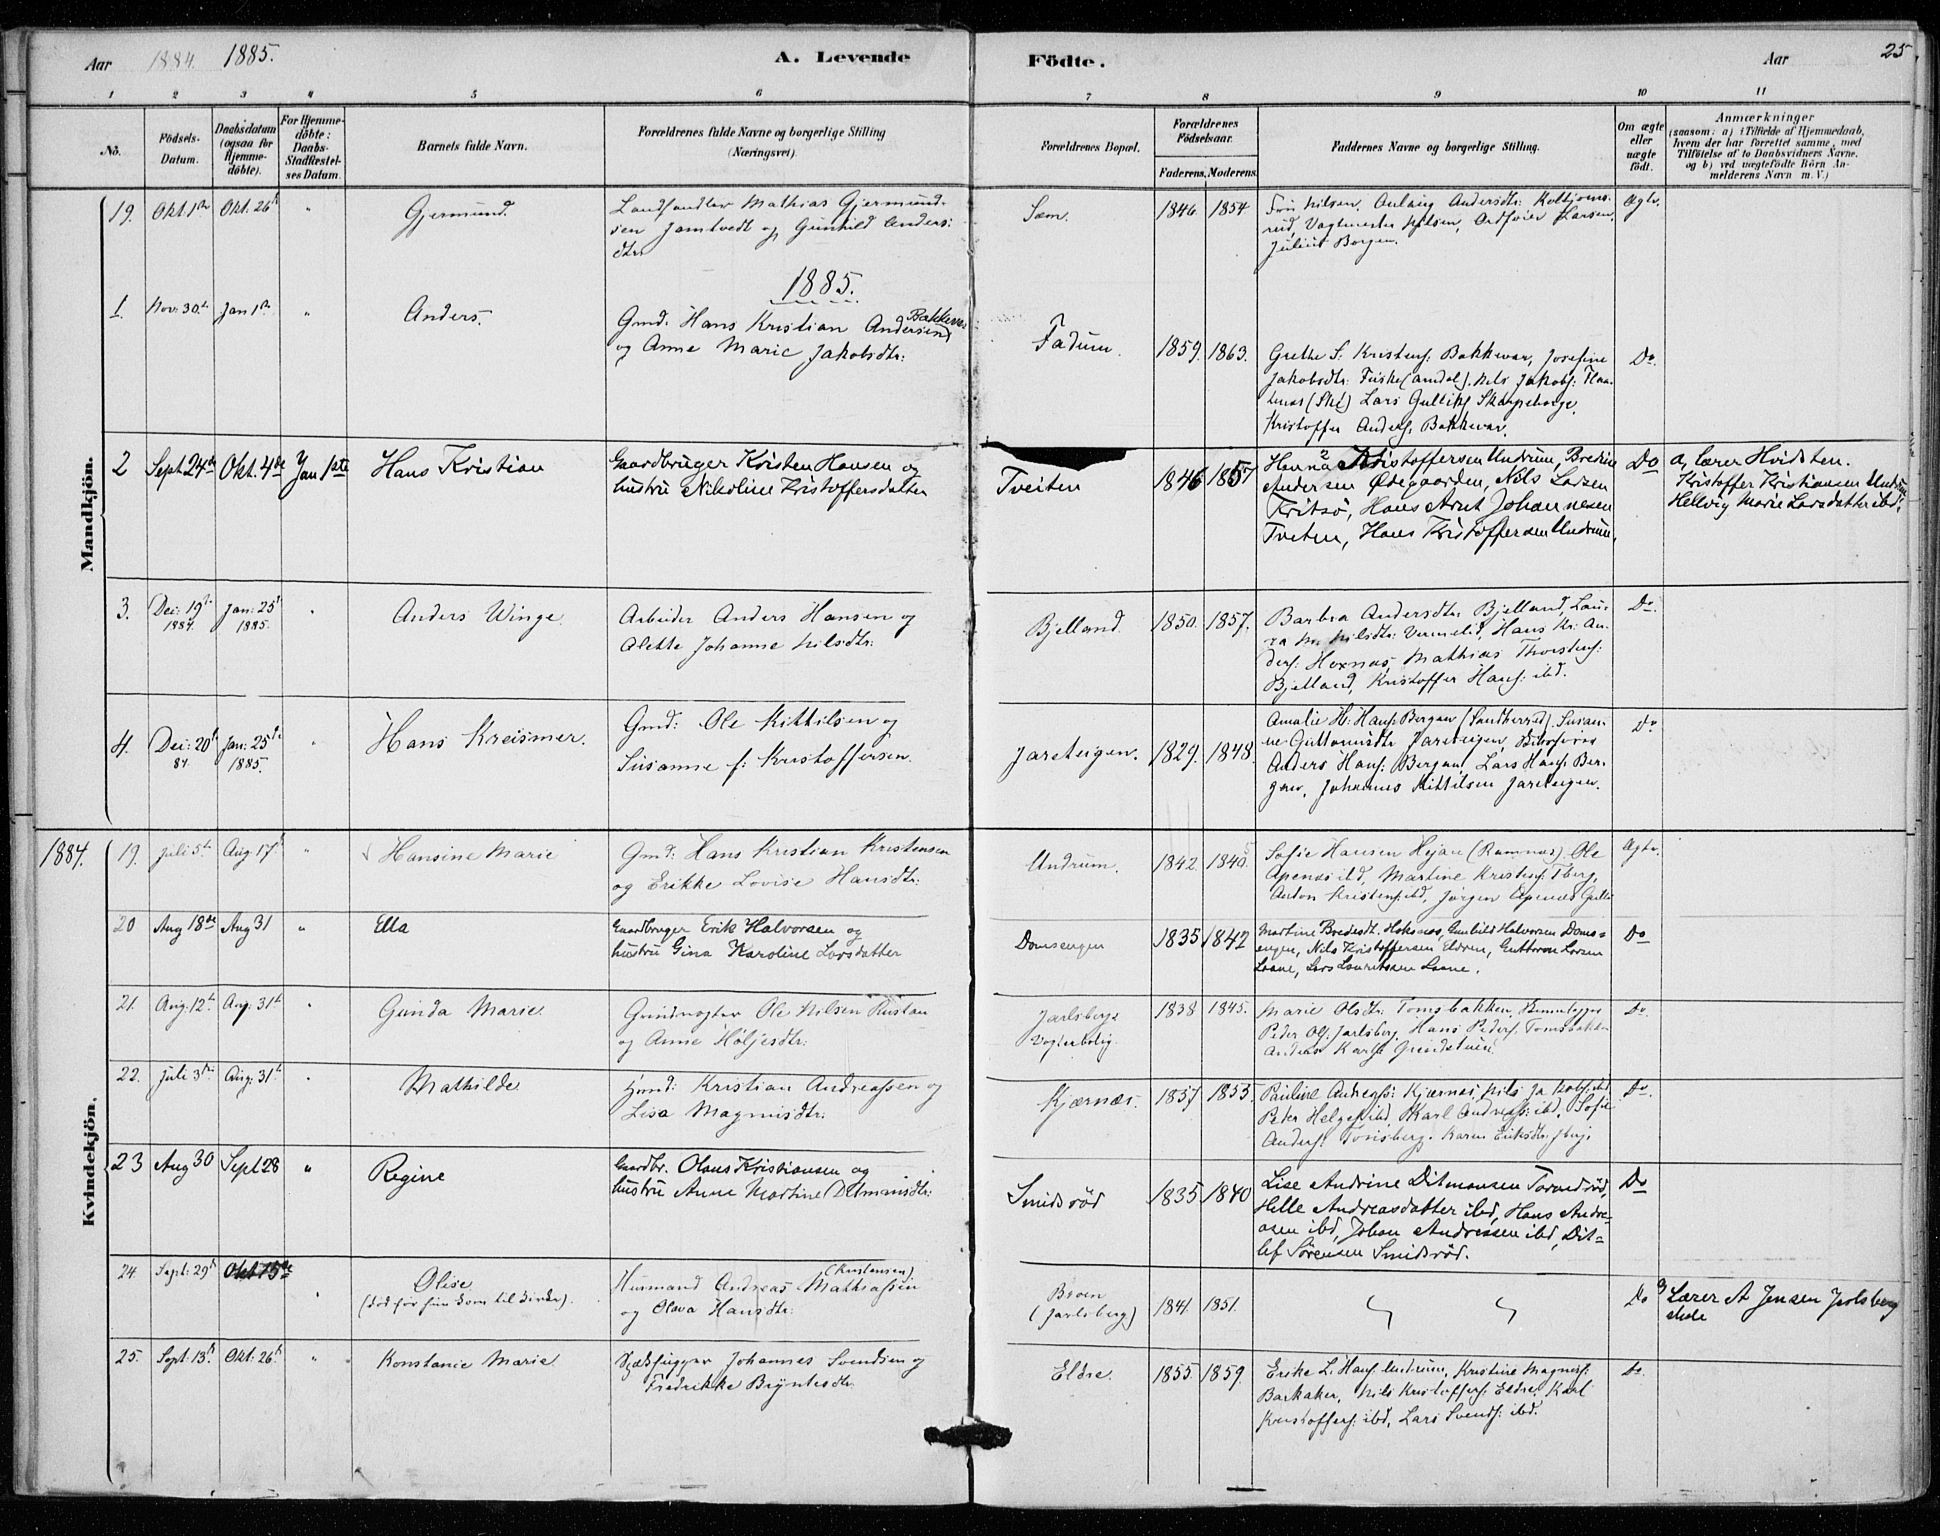 Aar 1884. 1885. A. Levende Födte. Aar 25
1 2 3 4 5 6 7 8 9 10 11
No. Födsels-Datum. Daabsdatum (ogsaa for Hjemmedöbte). For Hjemmedöbte: Daabs-Stadfæstelses Datum. Barnets fulde Navn. Forældrenes fulde Navne og borgerlige Stilling (Næringsvei). Forældrenes Bopæl. Forældrenes Födselsaar. Faderens. Moderens. Faddernes Navne og borgerlige Stilling. Om ægte eller uægte födt. Anmærkninger (saasom: a) i Tilfælde af Hjemmedaab, hvem der har forrettet samme, med Tilföielse af to Daabsvidners Navne, og b) ved uægtefödte Börn Anmelderens Navn m. V.)
Mandkjön.
19. Okt. 1ste Okt. 26t " Gjermund. Landhandler Mathias Gjermund-
sen Jamtvedt og Gunhild Anders-
dtr.
Sem. 1846 1854 Fru Nilsen, Anlaug Andersdtr:
Vagtmester Nilsen, Larsen,
Julius Borgen.
Ægte.
1885.
1. Nov: 30te Jan 1ste " Anders. Gmd: Hans Kristian Andersen Bakkevar
og Anne Marie Jakobsdtr:
Fadum. 1859. 1863. Grethe S. Kristens: Bakkevar, Josefine
Jakobsdtr: Fuske (Andeb). Nils Jakobs:
(Ske) Lars Gulliks Skarpeborge,
Kristoffer Anders: Bakkevar.
Do.
2 Sept 24de Okt. 4de Jan 1ste Hans Kristian Gaardbruger Kristen Hansen og
hustru Nikoline Kristoffersdatter
Tveiten 1846 1857 Hanna Kristoffersen Undrum, Bredine
Andersen Ødegaarden, Nils Larsen
Fritsø, Hans Arnt Johannesen
Tveten, Hans Kristoffersen Undrum,
Do a, Lærer Hvidsten.
Kristoffer Kristiansen Undrum
Hellvig Marie Larsdatter ibd.
3. Dec: 19de 1884. Jan: 25t 1885. " Anders Winge Arbeider Anders Hansen og
Alette Johanne Nilsdtr:
Bjelland. 1850. 1857. Barbra Andersdtr. Bjelland, Lau-
ra M. Nilsdtr: Vermelid, Hans Kr: An-
ders: Hexnæs, Mathias Thorstens:
Bjelland, Kristoffer Hans: ibd.
Do.
4. Dec: 20de 84. Jan: 25de 1885. " Hans Kreismer. Gmd: Ole Kittilsen og
Susanne f: Kristoffersen.
Jareteigen. 1829. 1848. Amalie H: Hans: Bergan (Sandherred), Susan-
ne Guttormsdtr Jareteigen,
Anders Hans: Bergan, Lars Hans: Ber-
gan, Johannes Kittilsen Jareteigen.
Do
1884.
Kvindekjön.
19. Juli 5te Aug 17de " Hansine Marie Gmd: Hans Kristian Kristensen
og Erikke Lovise Hansdtr:
Undrum. 1842. 1840. Sofie Hansen Hejan (Ramnæs), Ole
Apenæs ibd, Martine Kristens: Tberg,
Anton Kristens: ibd, Jørgen Apenæs Gulli
Ægte.
20 Aug 18de Aug 31 " Ella Gaardbruger Erik Halvorsen og
hustru Gina Karoline Larsdatter
Domsengen 1835 1842 Martine Bredesdt. Heksnæs, Gunhild Halvorsen Doms-
engen, Nils Kristoffersen Eldren, Guttorm Larsen
Laane, Lars Lauritssen Laane.
Do
21. Aug: 12te Aug: 31t " Gunda Marie Grindvogter Ole Nilsen Rustan
og Anne Holjesdtr:
Jarlsbergs
Vogterbolig. 1838 1845. Marie Olsdtr: Tomsbakken,
Peder Ols: Jarlsberg, Hans Peders: Tomsbakken
Andreas Karls: Grindstuen.
Do.
22. Juli 3die Aug: 31t " Mathilde Gmd: Kristian Andreassen og
Lisa Magnusdtr:
Kjærnæs. 1857 1853. Pauline Andreass: Kjærnæs, Nils Jakobs: ibd
Peder Helges: ibd, Karl Andreass: ibd, Sofie
Anders: Tønsberg. Karen Eriksdtr: Tberg.
Do.
23 Aug 30 Sept 28 " Regine Gaardbr. Olaus Kristiansen og
hustru Anne Martine Ditmansdtr:
Smidsrød 1835 1840 Lise Andrine Ditmansen Torvedrød,
Helle Andreasdatter ibd, Hans Andre-
asen ibd, Johan Andreasen ibd, Dit-
lef Sørensen Smidsrød.
Do
24. Sept: 29de Okt 15de " Olise
(død før hun kom til kirke). Husmand Andreas Mathiassen (Kristensen)
og Olava Hansdtr:
Broen
(Jarlsberg) 1841. 1851. " " Do a) Lærer A Jensen Jarlsberg
skole
25. Sept: 13de Okt. 26de " Konstanie Marie Johannes Svendsen og
Fredrikke Bryntesdtr.
Eldre. 1855. 1859. Erike L. Hans: Undrum, Kristine Magnus:
Barkaker, Nils Kristoffers: Eldre, Karl
Kristoffers: ibd, Lars Svends: ibd.
Do.